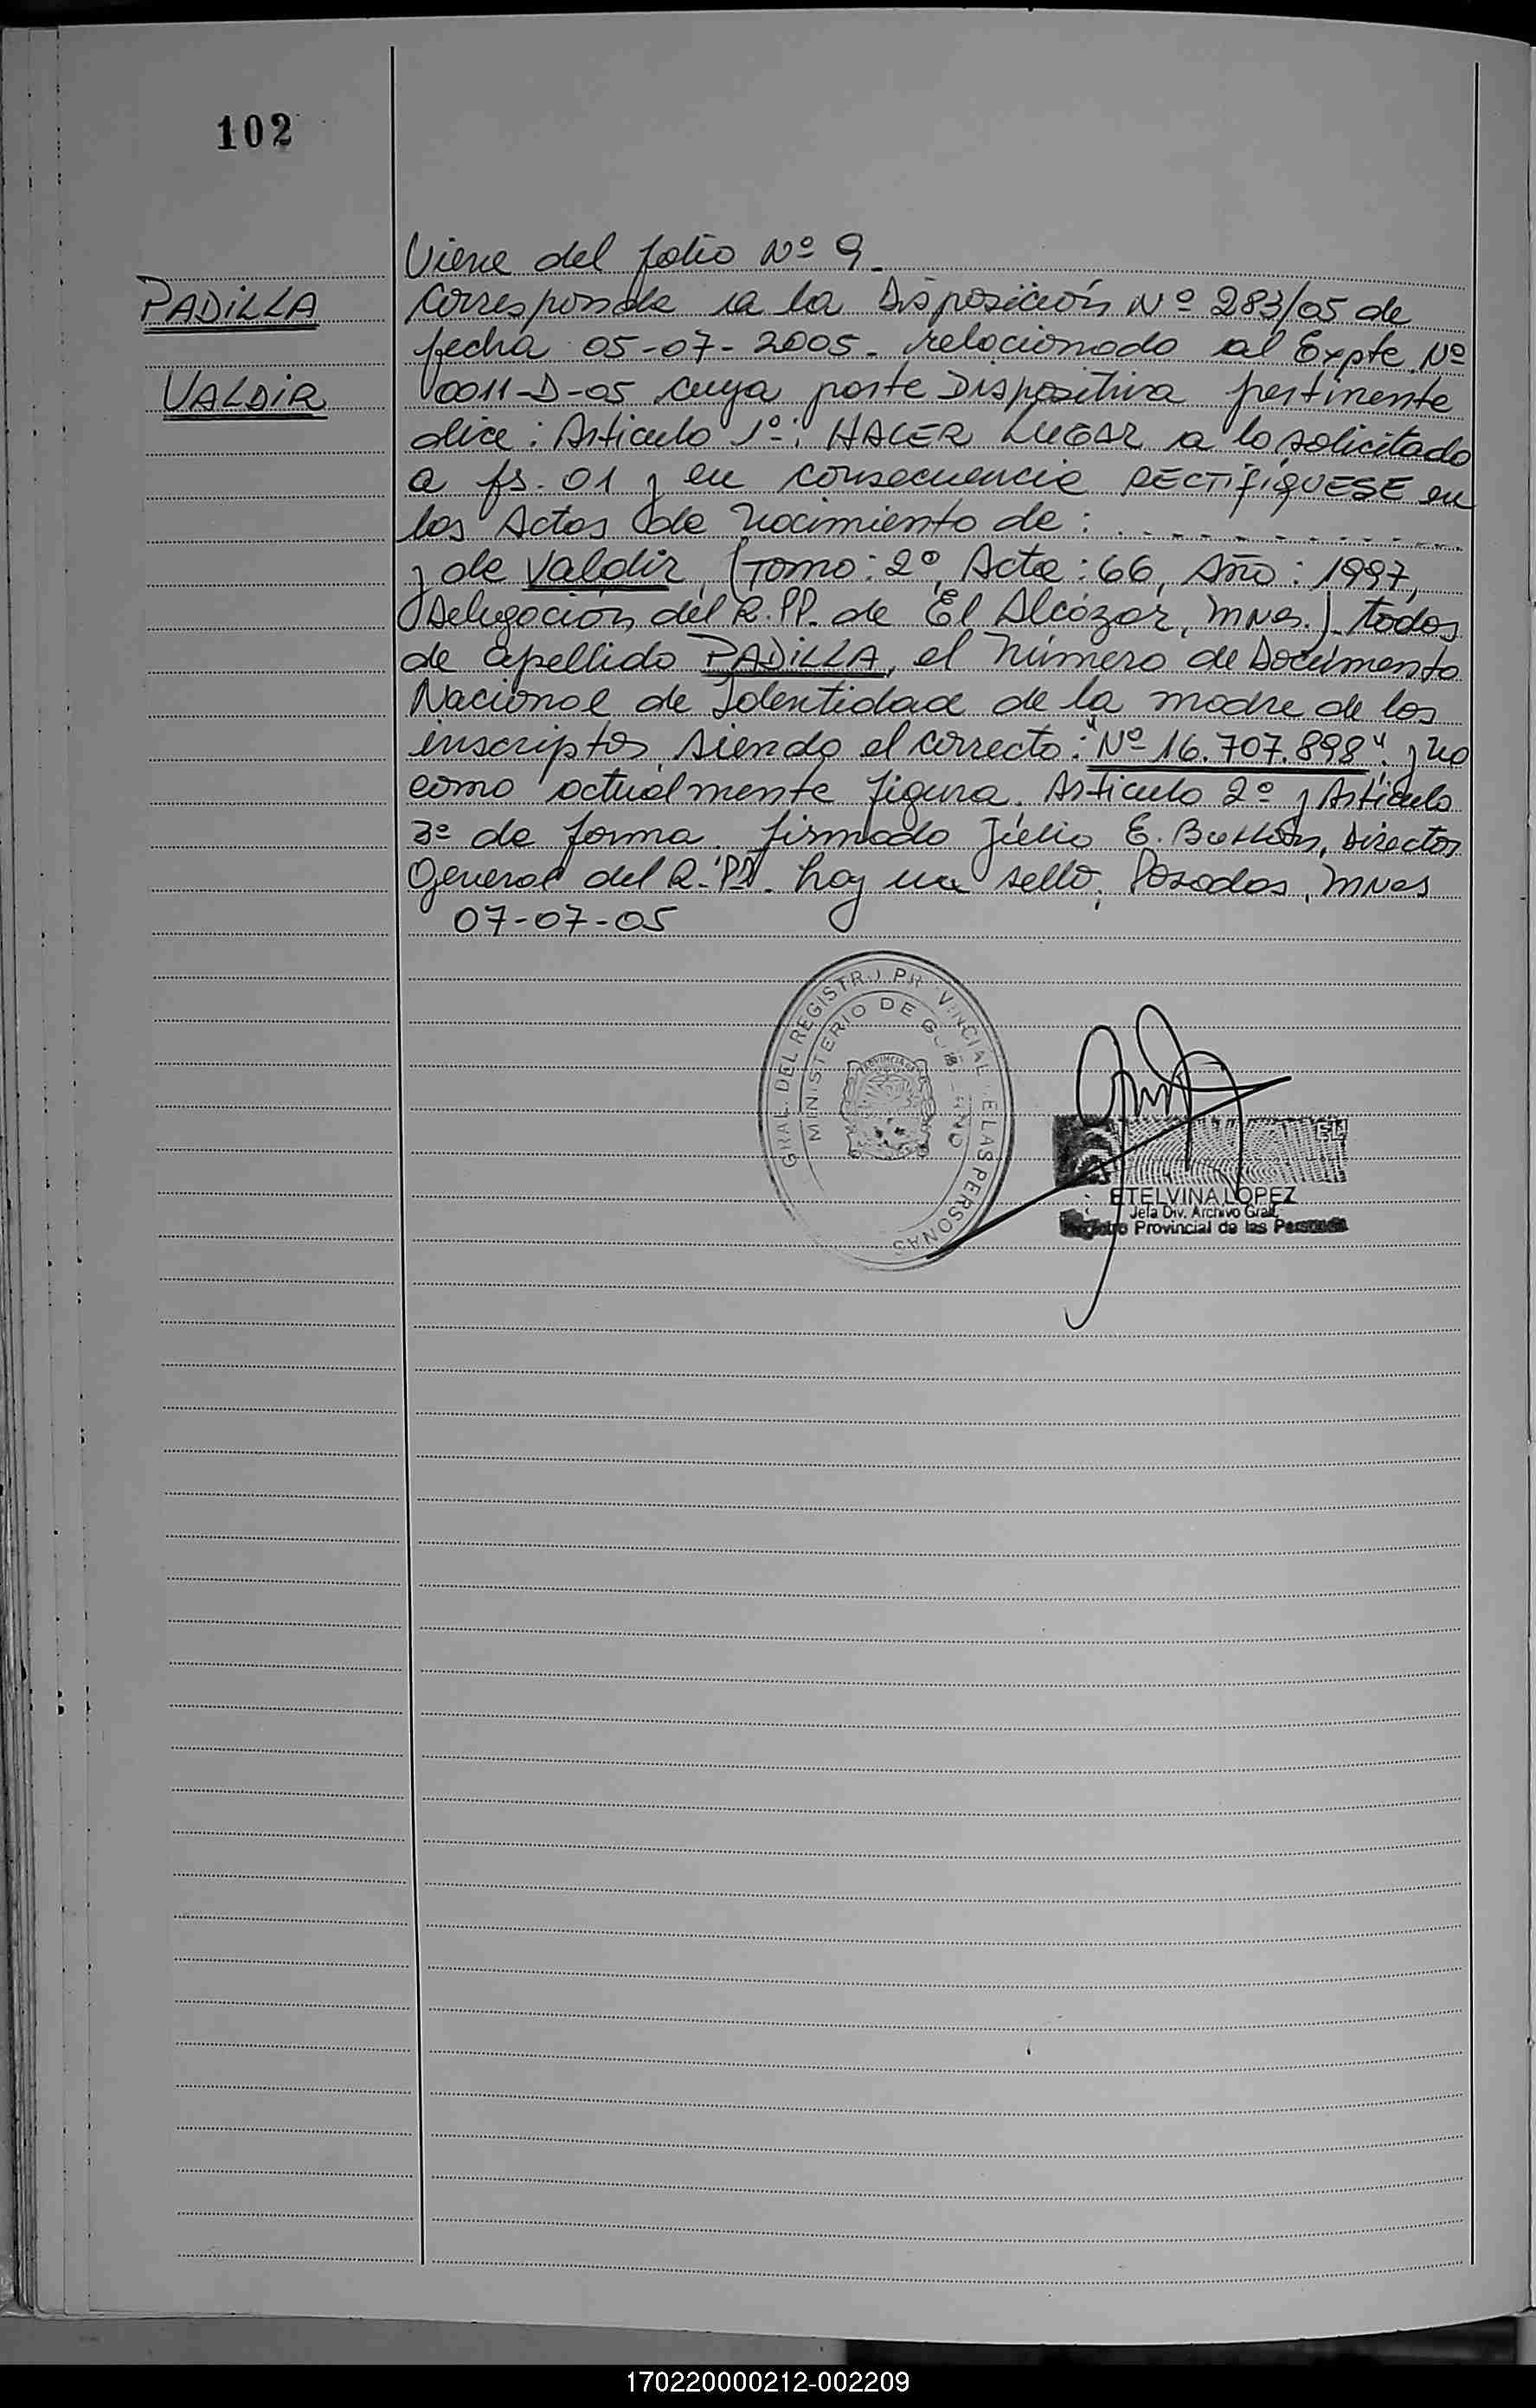 102
PADILLA
VALDIR
Viene del folio Nº 9.
Corresponde a la Disposición Nº 283/05 de
fecha 05-07-2005. relacionado al Expte. Nº
0011-D-05 cuya parte Dispositiva pertinente
dice: Artículo 1º: HACER LUGAR a lo solicitado
a fs. 01 y en consecuencia RECTIFIQUESE en
los Actas de nacimiento de: . . . . . . . . . . . .
y de Valdir, (Tomo: 2º, Acta: 66, Año: 1997,
Delegación del R.PP. de El Alcázar, Mnes.). todos
de apellido PADILLA, el Número de Documento
Nacional de Identidad de la madre de los
inscriptos, siendo el correcto: "Nº 16.707.898" y no
como actualmente figura. Artículo 2º y Artículo
3º de forma. firmado Julio E. Director
General del R.PP. hay un sello. Posadas, Mnes
07-07-05
GRAL. DEL REGISTRO PROVINCIAL DE LAS PERSONAS
MINISTERIO DE GOBIERNO
PROVINCIA
ETELVINA LOPEZ
Jefa Div. Archivo Gral.
Registro Provincial de las Personas
170220000212-002209